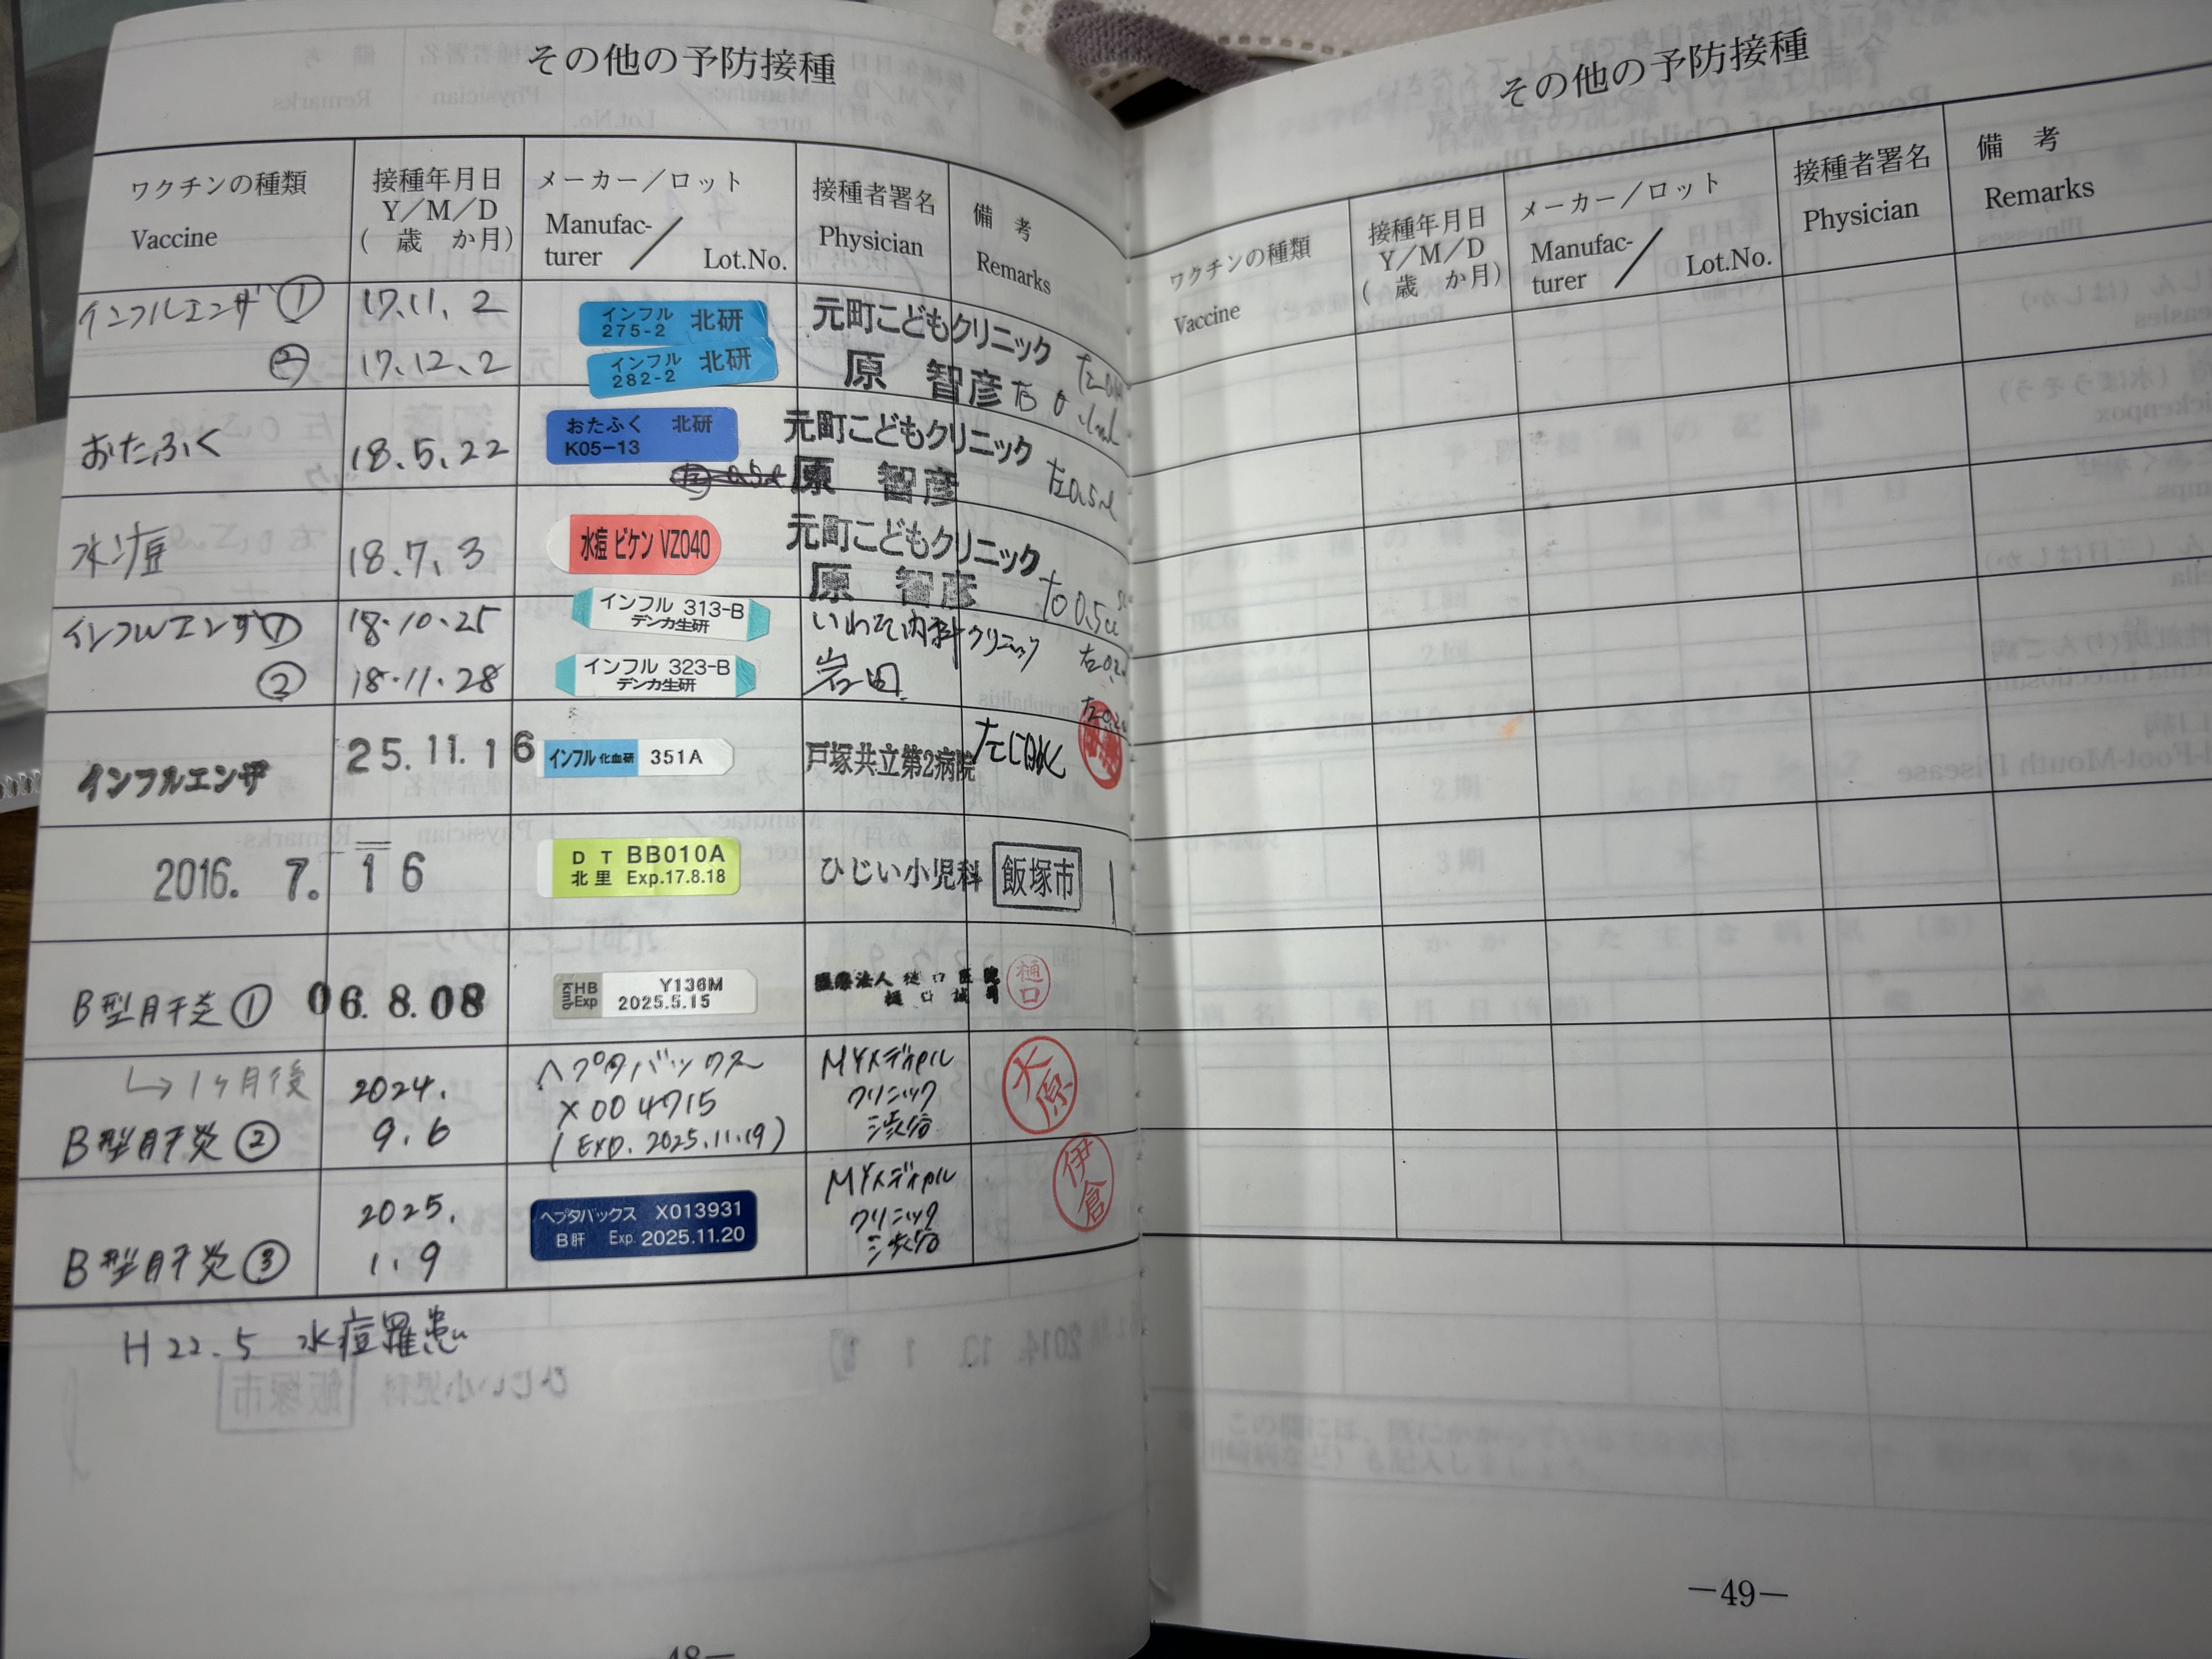 その他の予防接種
ワクチンの種類
Vaccine
接種年月日
Y／M／D
（ 歳 か月）
メーカー／ロット
Manufac-
turer ／ Lot.No.
接種者署名
Physician
備 考
Remarks
インフルエンザ① 17.11.2 インフル 275-2 北研 元町こどもクリニック
② 17.12.2 インフル 282-2 北研 原 智彦
おたふく 18.5.22 おたふく 北研 K05-13 元町こどもクリニック 原 智彦 左0.5ml
水痘 18.7.3 水痘 ビケン VZ040 元町こどもクリニック 原 智彦
インフルエンザ① 18.10.25 インフル 313-B デンカ生研 いわた内科クリニック
② 18.11.28 インフル 323-B デンカ生研 岩田
インフルエンザ 25.11.16 インフル 化血研 351A 戸塚共立第2病院
2016. 7. 16 DT BB010A 北里 Exp.17.8.18 ひじい小児科 飯塚市
B型肝炎① 06.8.08 HB Y136M KMB Exp 2025.5.15 医療法人 樋口医院 樋口
↳1ヶ月後
B型肝炎② 2024. 9.6 ヘプタバックス X004715 (Exp. 2025.11.19) MYメディカルクリニック渋谷 大原
B型肝炎③ 2025. 1.9 ヘプタバックス X013931 B肝 Exp. 2025.11.20 MYメディカルクリニック渋谷 伊倉
H22.5 水痘罹患
その他の予防接種
ワクチンの種類
Vaccine
接種年月日
Y／M／D
（ 歳 か月）
メーカー／ロット
Manufac-
turer ／ Lot.No.
接種者署名
Physician
備 考
Remarks
—49—